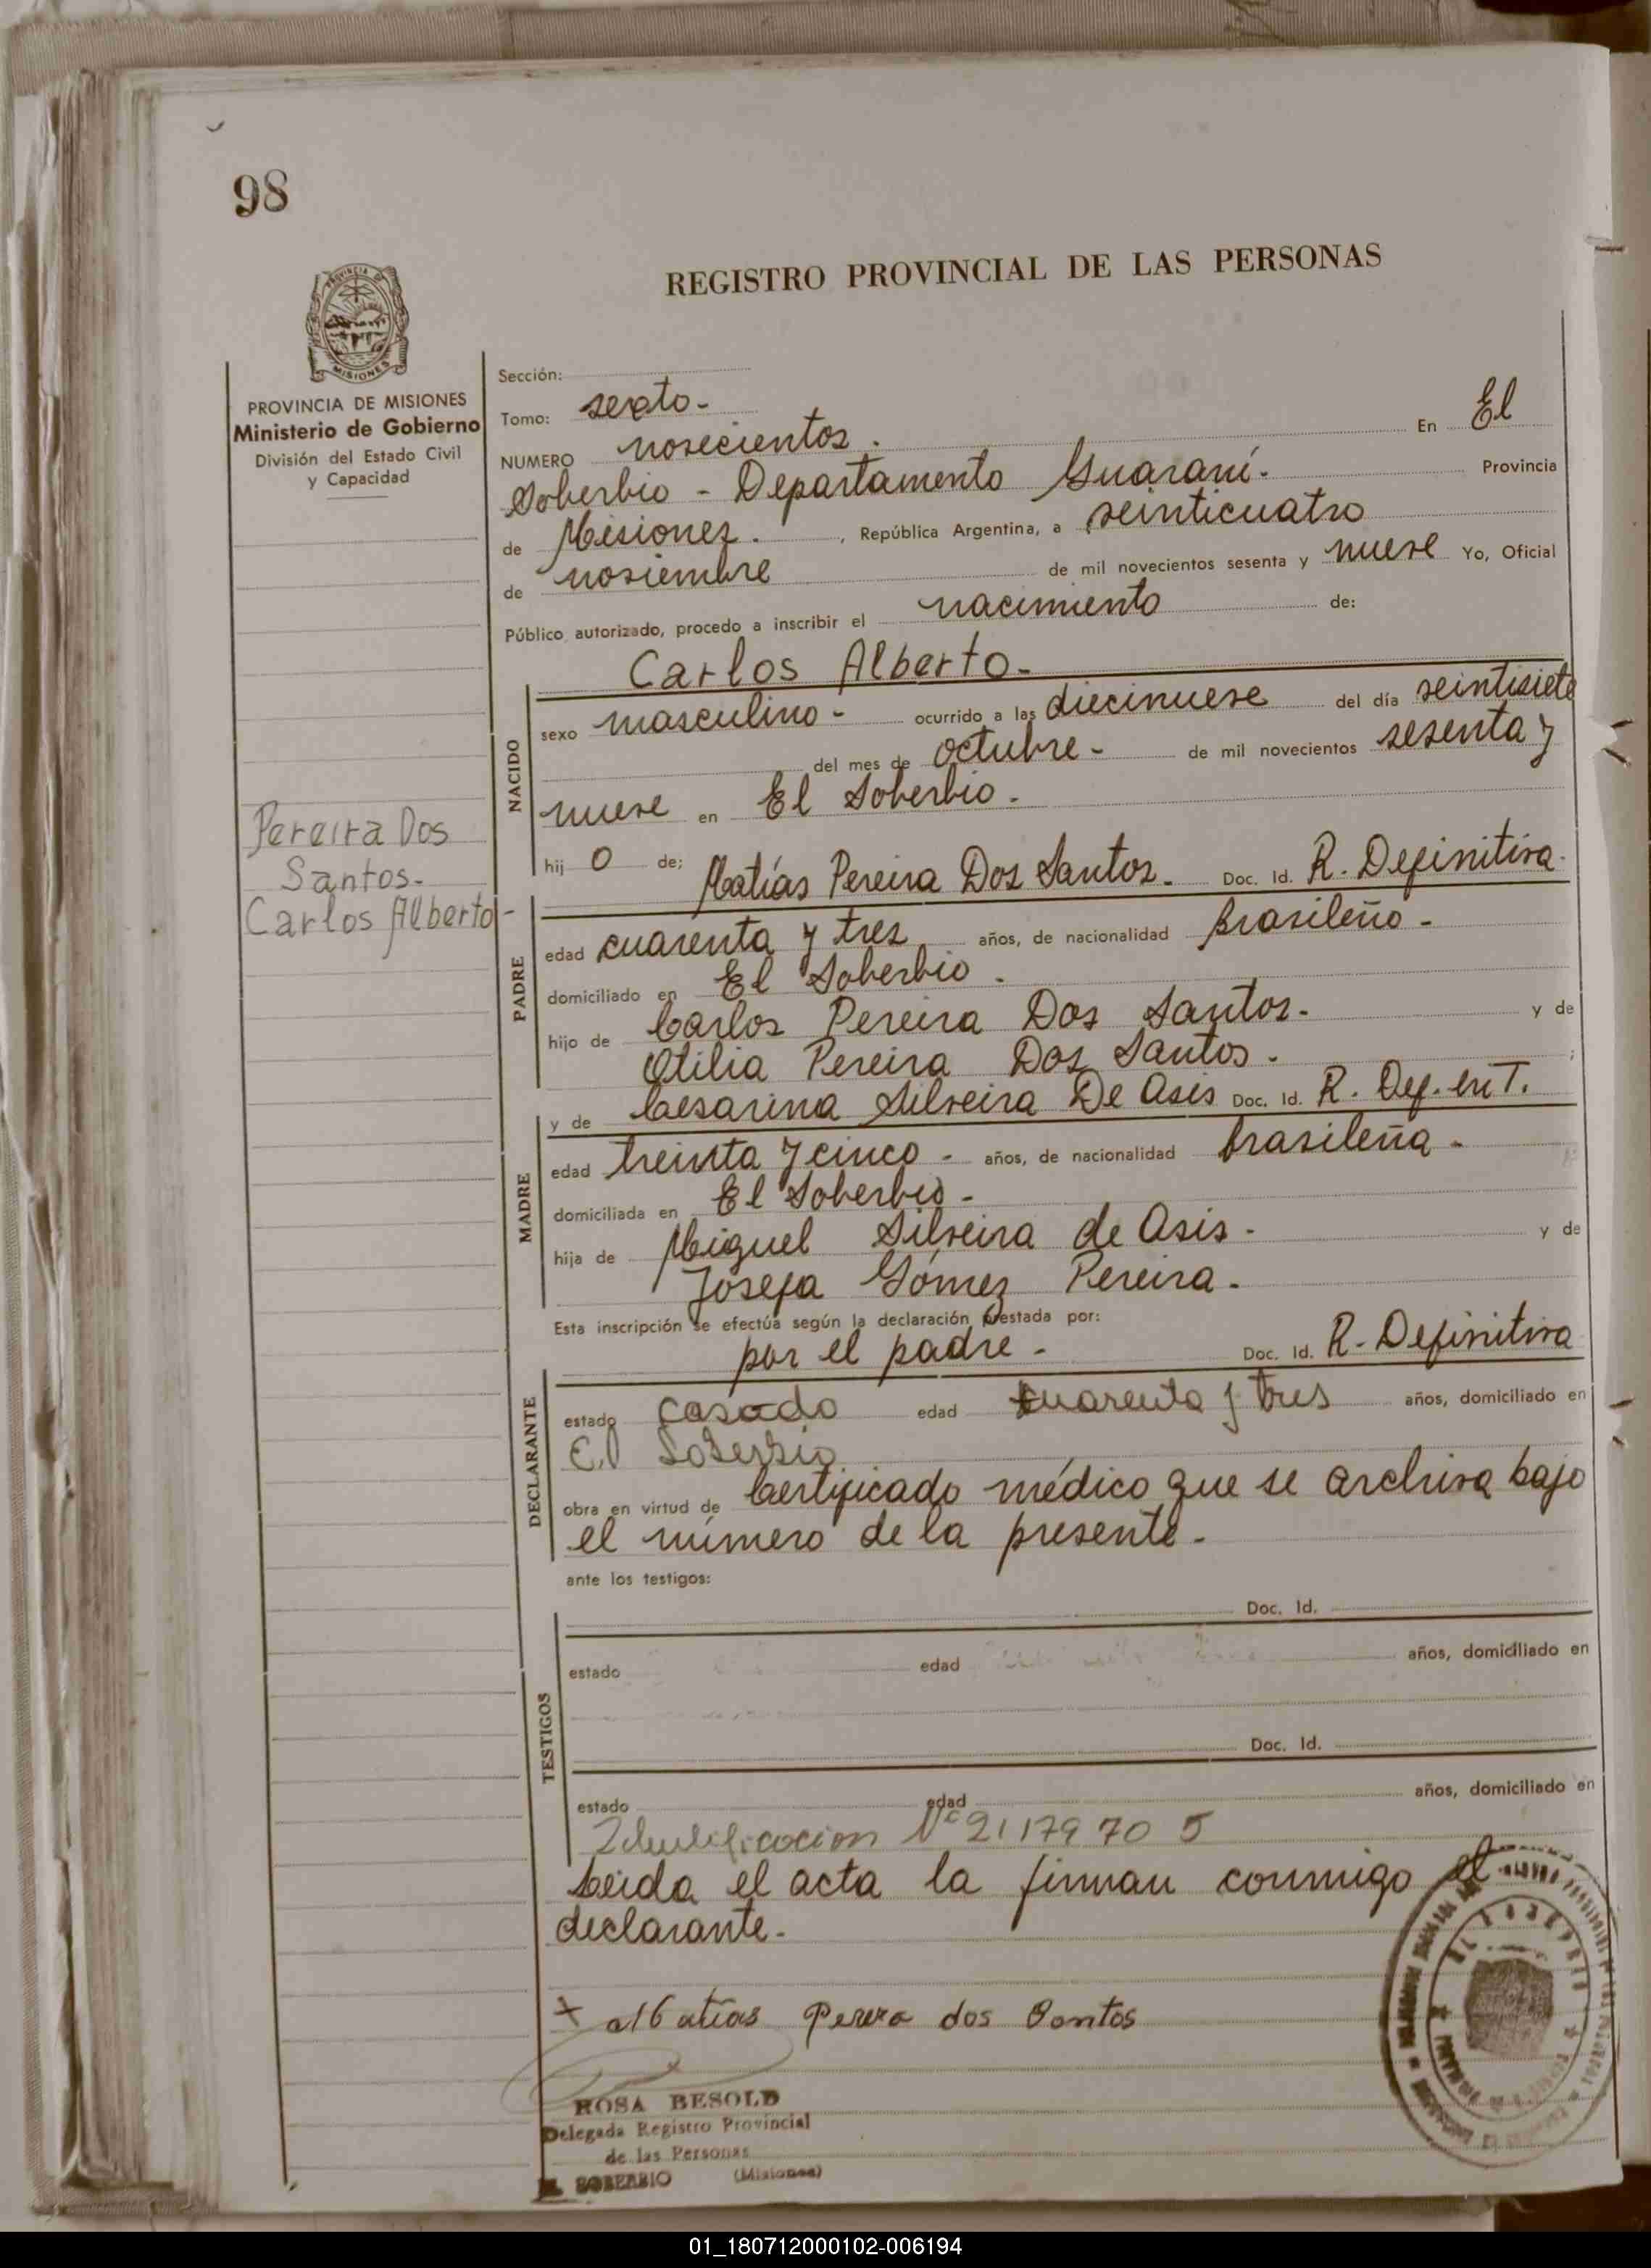 98
REGISTRO PROVINCIAL DE LAS PERSONAS
PROVINCIA DE
MISIONES
PROVINCIA DE MISIONES
Ministerio de Gobierno
División del Estado Civil
y Capacidad
Pereira Dos
Santos.-
Carlos Alberto-
Sección:
Tomo: sexto-
NUMERO novecientos. En El
Soberbio - Departamento Guaraní. Provincia
de Misiones. , República Argentina, a veinticuatro
de noviembre de mil novecientos sesenta y nueve Yo, Oficial
Público autorizado, procedo a inscribir el nacimiento de:
Carlos Alberto-
NACIDO
sexo masculino - ocurrido a las diecinueve del día veintisiete
del mes de octubre - de mil novecientos sesenta y
nueve en El Soberbio.
hij o de; Matías Pereira Dos Santos. Doc. Id. R. Definitiva.
PADRE
edad cuarenta y tres años, de nacionalidad brasileño -
domiciliado en El Soberbio.
hijo de Carlos Pereira Dos Santos. y de
Otilia Pereira Dos Santos. ;
y de Cesarina Silveira De Asis Doc. Id. R. Def. en T.
MADRE
edad treinta y cinco - años, de nacionalidad brasileña -
domiciliada en El Soberbio -
hija de Miguel Silveira de Asis - y de
Josefa Gómez Pereira.
Esta inscripción se efectúa según la declaración prestada por:
por el padre - Doc. Id. R. Definitiva
DECLARANTE
estado casado edad cuarenta y tres años, domiciliado en
El Soberbio
obra en virtud de Certificado médico que se archiva bajo
el número de la presente.
ante los testigos:
Doc. Id.
TESTIGOS
estado edad años, domiciliado en
Doc. Id.
estado edad años, domiciliado en
Identificacion Nº 21 179 70 5
Leida el acta la firman conmigo el
declarante.
+ Matias Perera dos Santos
ROSA BESOLD
Delegada Registro Provincial
de las Personas
EL SOBERBIO (Misiones)
01_180712000102-006194